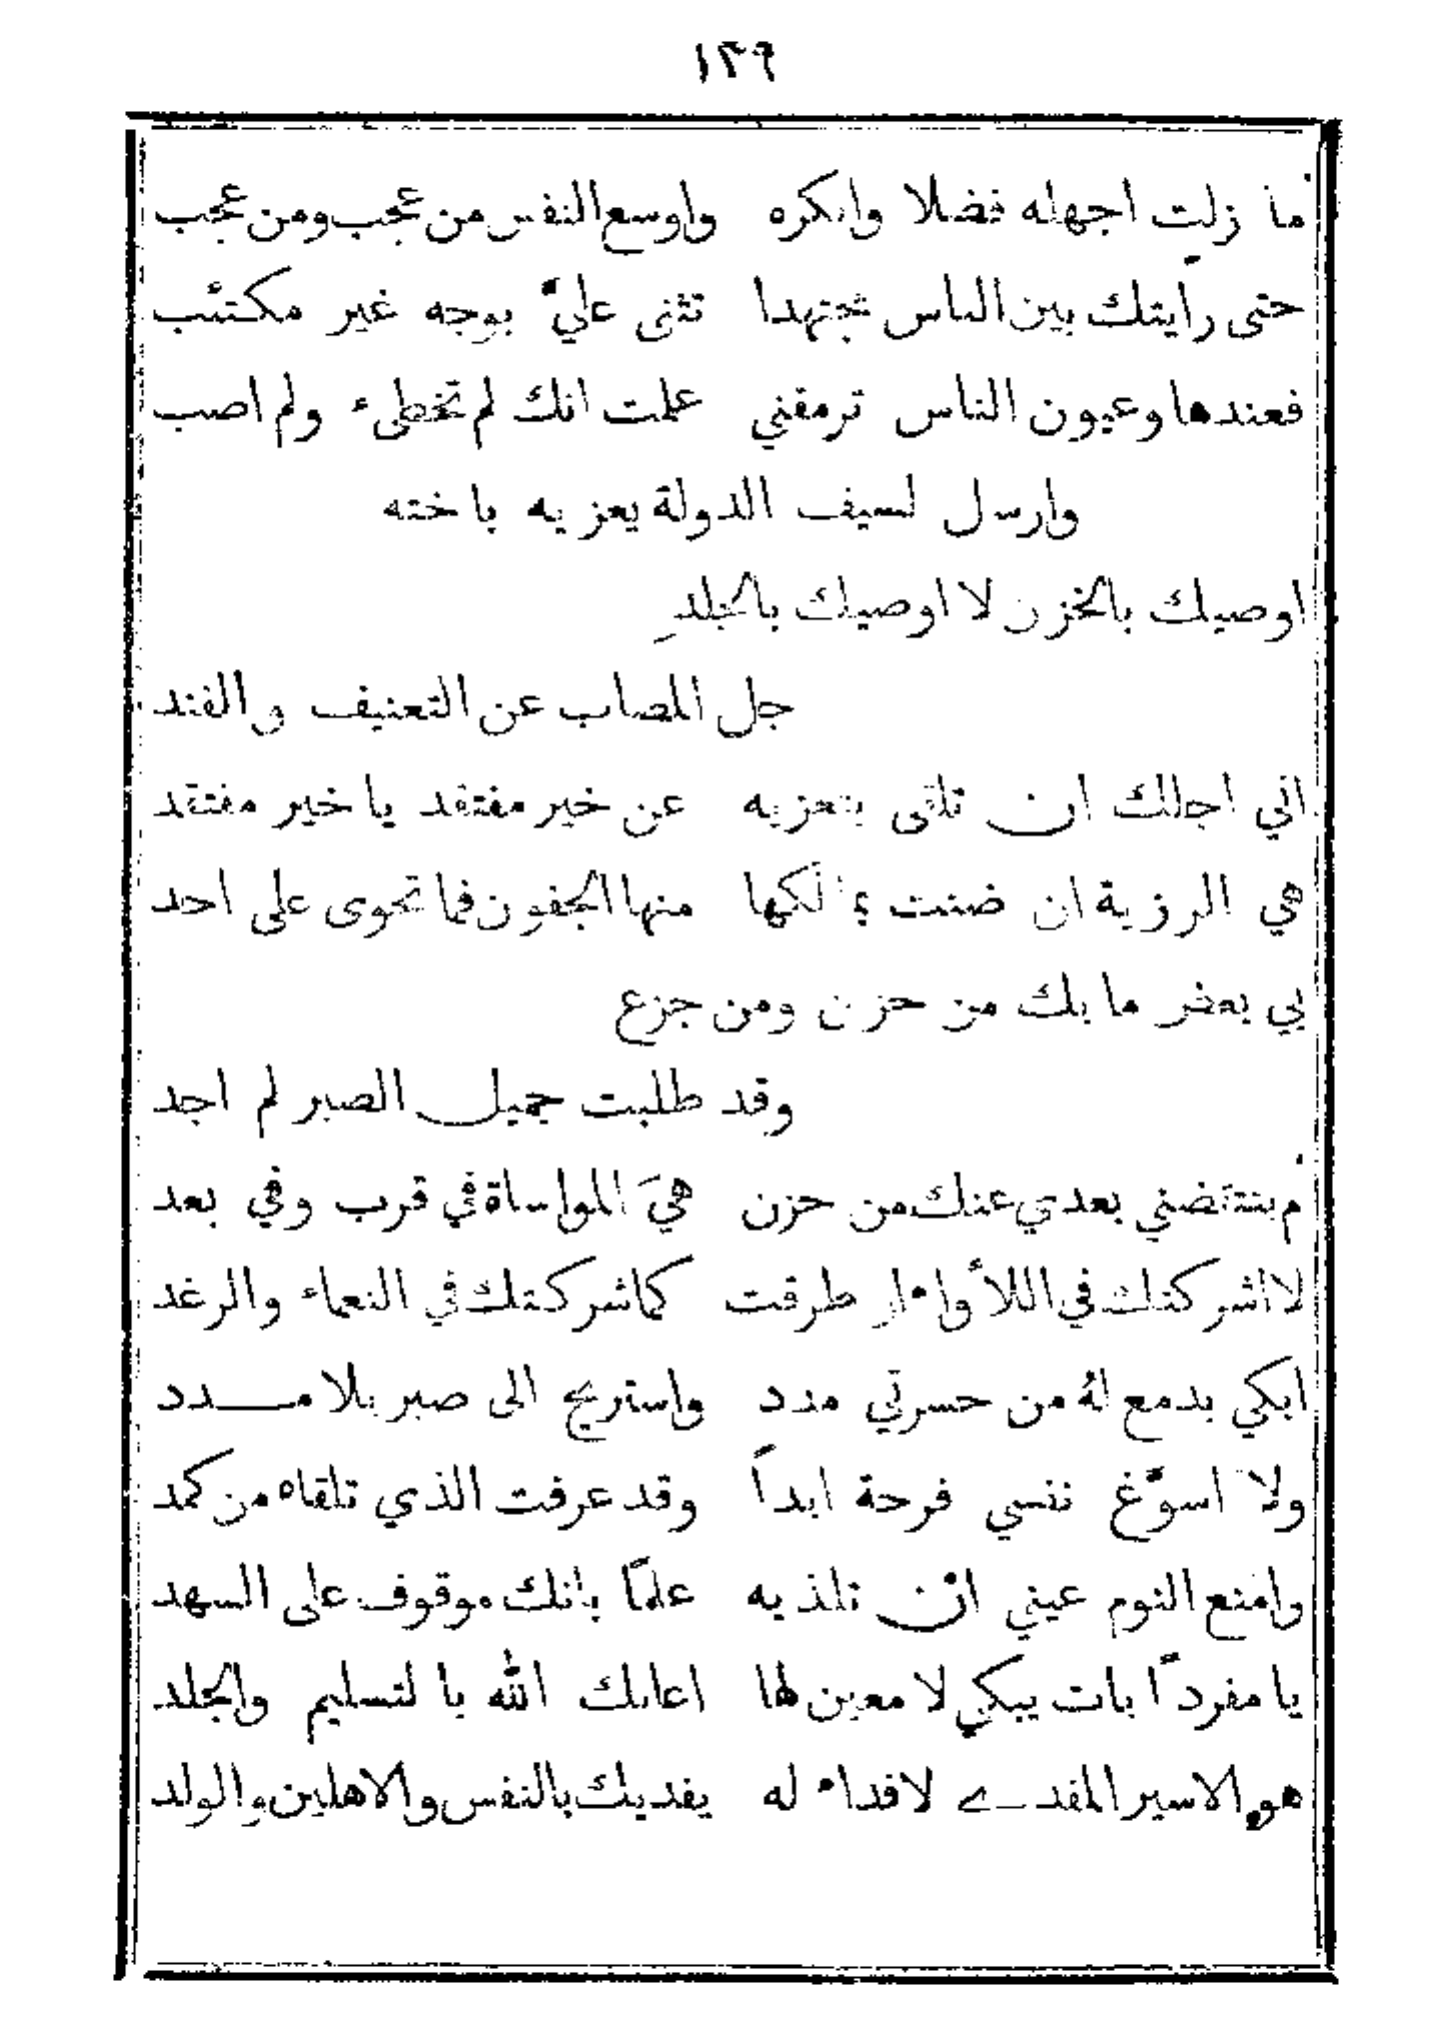 ١٣٩
ما زلت اجهله فضلا وانكره واوسع النفس من عجب ومن عجب
حتى رأيتك بين الناس مجتهدا تثنى عليَّ بوجه غير مكتئب
فعندها وعيون الناس ترمقني علمت انك لم تخطىء ولم اصب
وارسل لسيف الدولة يعزيه باخته
اوصيك بالحزن لا اوصيك بالجلدِ
جل المصاب عن التعنيف والفند
اني اجلك ان تلقى بتعزيه عن خير مفتقد يا خير مفتقد
هي الرزية ان ضنت بما لكها منها الجفون فما تحوى على احد
بي بعض ما بك من حزن ومن جزع
وقد طلبت جميل الصبر لم اجد
لم ينتقضني بعدي عنك من حزن هيَ المواساة في قرب وفي بعد
لااشركنك في اللأواء ان طرقت كما شركتك في النعماء والرغد
ابكي بدمع لهُ من حسرتي مدد واستريح الى صبر بلا مـــدد
ولا اسوّغ نفسي فرحة ابداً وقد عرفت الذي تلقاه من كمد
وامنع النوم عيني ان تلذ به علمًا بانك موقوف على السهد
يا مفرداً بات يبكي لا معين لها اعانك الله با لتسليم والجلد
هو الاسير المفدى لافداء له يفديك بالنفس والاهلين والولد